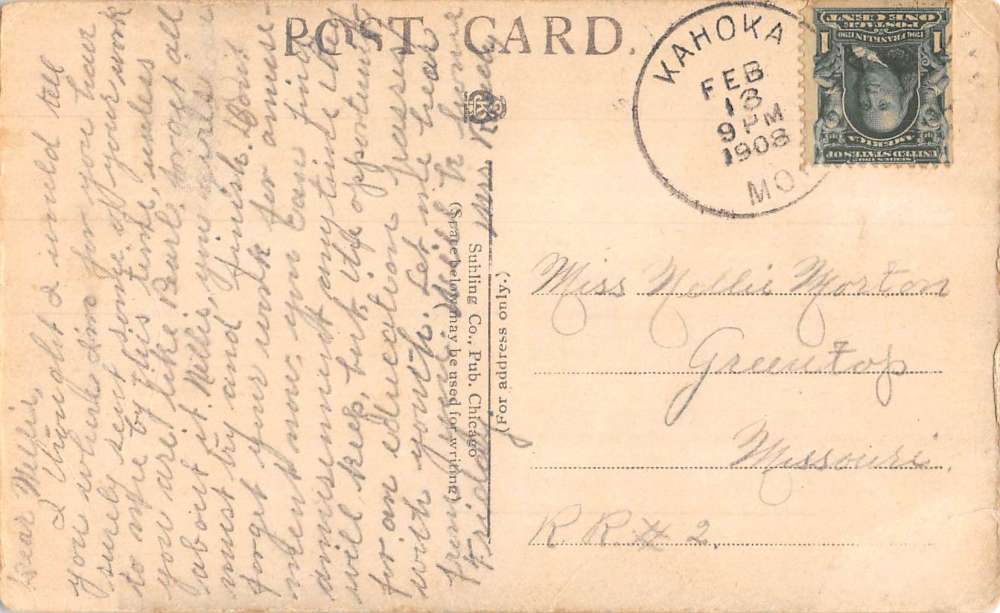 POST CARD.
KAHOKA
FEB
13
9 PM
1908
MO
ONE CENT
POSTAGE
1706 FRANKLIN 1790
1 1
SERIES 1902
UNITED STATES OF
AMERICA
Dear Nellie,
I thought I would tell
you where for you have
surely sent some of your work
to me by this time unless
you are like Burl, forgot all
about it. Nellie, you girls
must try and finish. Don't
forget your work for amuse-
ment now: you can find
amusement anytime it
will keep, but the opportunity
for an education passes
with youth. Let me hear
from you. Will be home
Friday. Mrs.
(Space below may be used for writing)
Suhling Co., Pub. Chicago
(For address only.)
Miss Nellie Morton
Greentop
Missouri.
R. R. # 2.